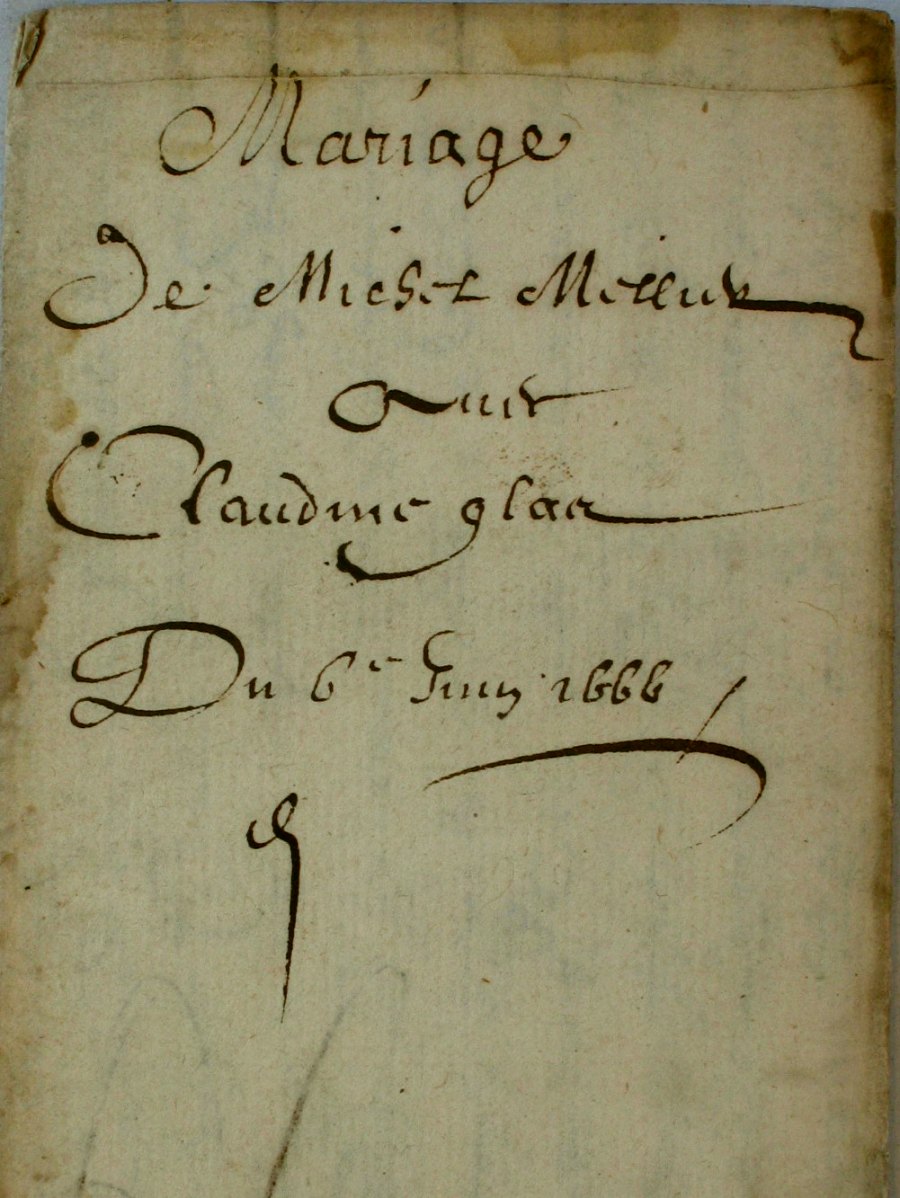 Mariage
De Michel Mellier
Auec
Claudine glas
Du 6e Juin 1666